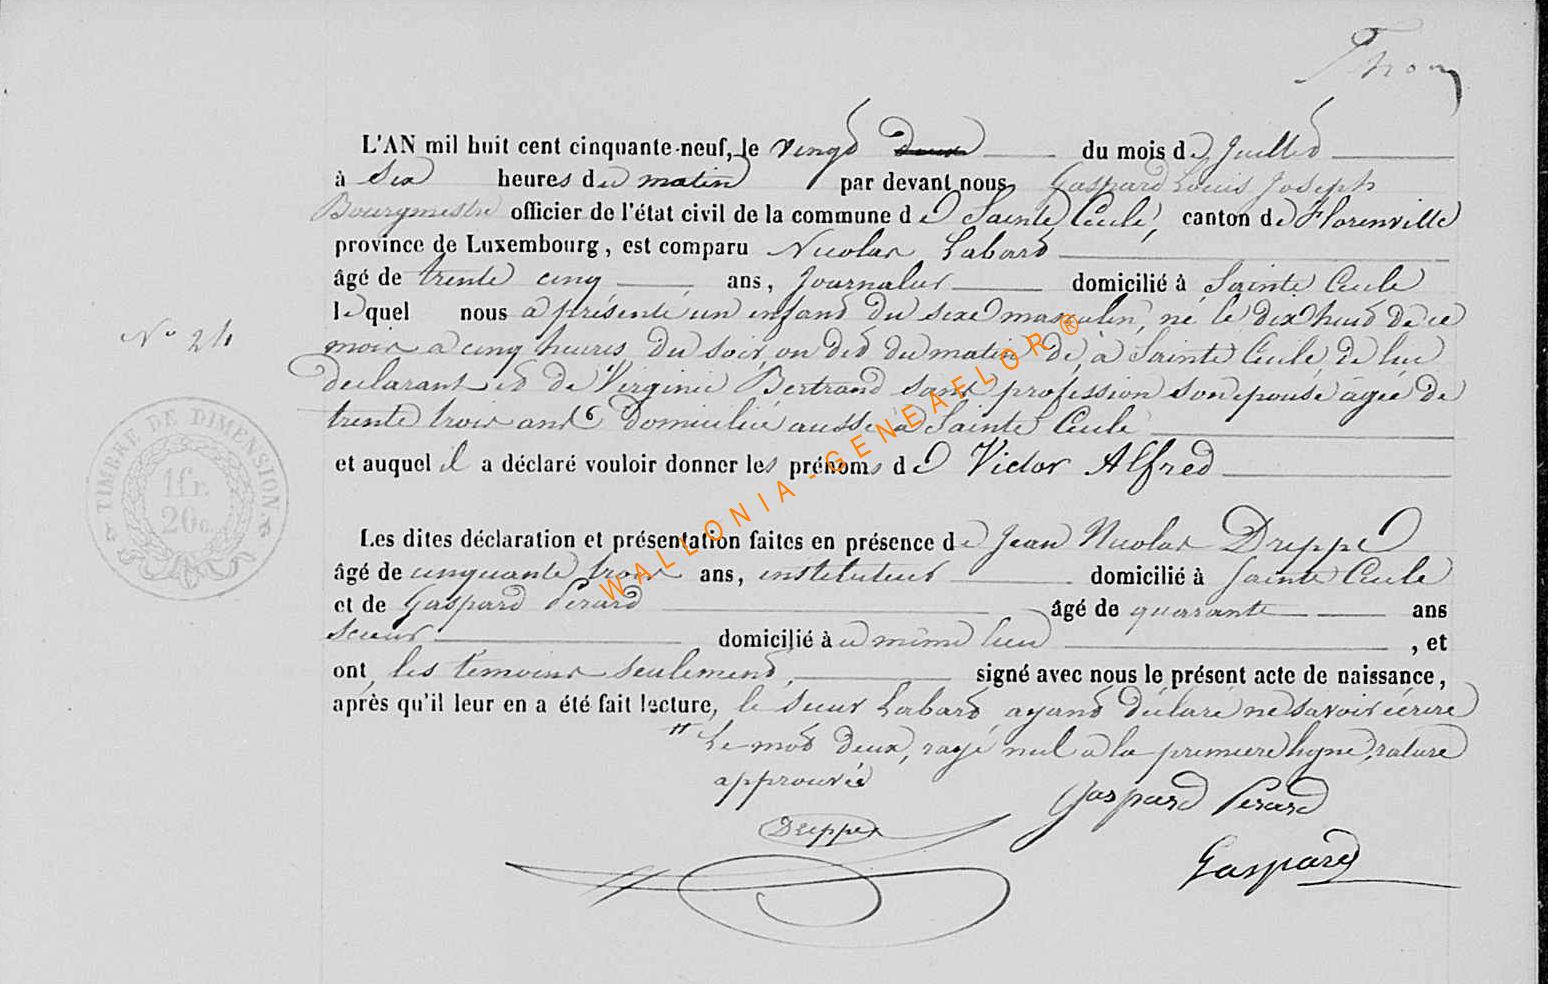 L'AN mil huit cent cinquante-neuf, le vingt deux du mois de Juillet
à six heures du matin par devant nous Gaspard Louis Joseph
Bourgmestre officier de l'état civil de la commune de Sainte Cécile, canton de Florenville
province de Luxembourg, est comparu Nicolas Labard
âgé de trente cinq ans, Journalier domicilié à Sainte Cécile
lequel nous a présenté un enfant du sexe masculin, né le dix huit de ce
mois à cinq heures du soir, on dit du matin à Sainte Cécile, de lui
déclarant et de Virginie Bertrand sans profession son épouse âgée de
trente trois ans domiciliée aussi à Sainte Cécile
et auquel il a déclaré vouloir donner les prénoms de Victor Alfred
Les dites déclaration et présentation faites en présence de Jean Nicolas Dreppe
âgé de cinquante trois ans, instituteur domicilié à Sainte Cécile
et de Gaspard Perard âgé de quarante ans
scieur domicilié à même lieu , et
ont les témoins seulement, signé avec nous le présent acte de naissance,
après qu'il leur en a été fait lecture, le sieur Labard ayant déclaré ne savoir écrire
Le mot deux, rayé nul à la première ligne, rature
approuvée
Gaspard Perard
Dreppe
Gaspard
N° 24
TIMBRE DE DIMENSION
1fr.
20c.
WALLONIA-GENEAFLOR®